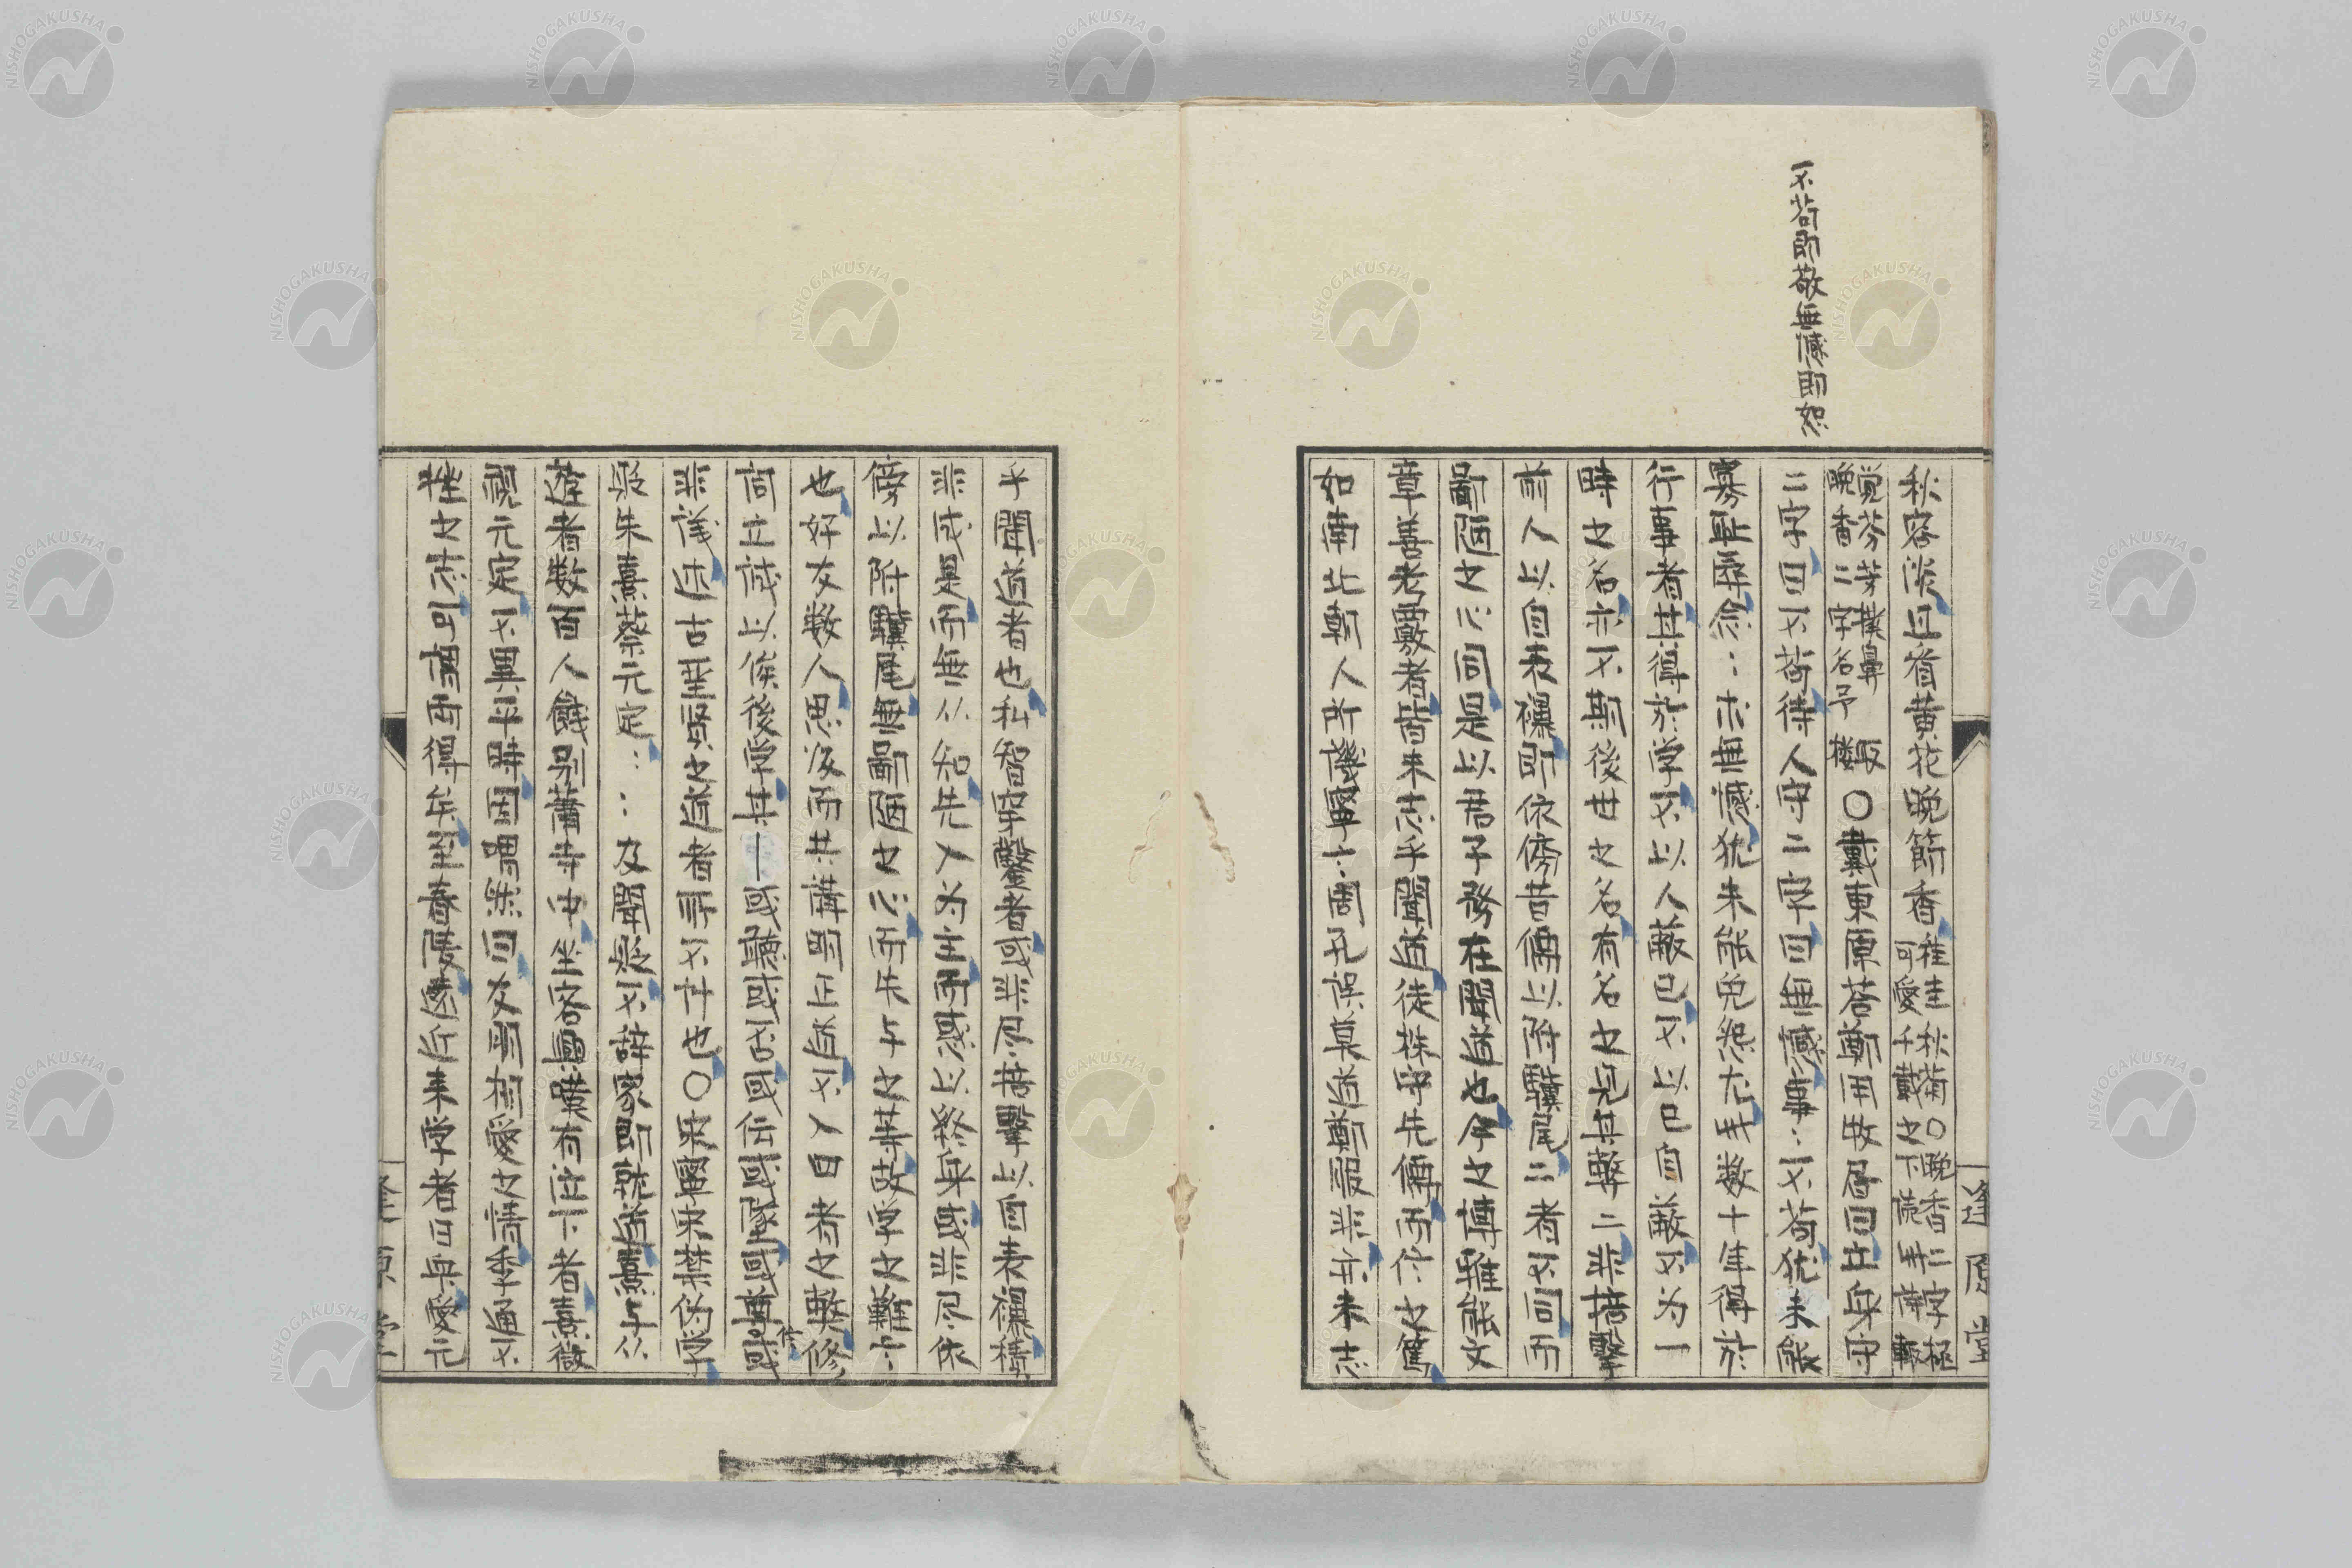 不苟即敬無憾即恕
秋容淡且看黄花晩節香 稚圭秋菊○晩香二字極
可愛千載之下読我詩輙
覚芬芳撲鼻
晩香二字名予
取
樓
○戴東原荅鄭用牧居曰立身守
二字曰不苟待人守二字曰無憾事〻不苟猶未能
寡耻辱念〻求無憾猶未能免怨尤我数十年得於
行事者其得於学不以人蔽已不以已自蔽不為一
時之名亦不期後世之名有名之見其弊二非掊擊
前人以自表襮即依傍昔儒以附驥尾二者不同而
鄙陋之心同是以君子務在聞道也今之博雅能文
章善考覈者皆未志乎聞道徒株守先儒而信之篤
如南北朝人所譏寧言周孔誤莫道鄭服非亦未志
乎聞道者也私智穿鑿者或非尽掊擊以自表襮積
非成是而無从知先入為主而惑以終身或非尽依
傍以附驥尾無鄙陋之心而失与之等故学之難言
也好友数人思帰而共講明正道不入四者之弊修
詞立誠以俟後学其|或聴或否或伝或墜或尊或
非議述古聖賢之道者所不計也○宋寧宋禁偽学
貶朱熹蔡元定〻〻及聞貶不辞家即就道熹与从
遊者数百人餞别蕭寺中坐客興嘆有泣下者熹微
視元定不異平時因喟然曰友朋相愛之情季通不
挫之志可謂両得矣至舂陵遠近来学者日衆愛元
逢原堂